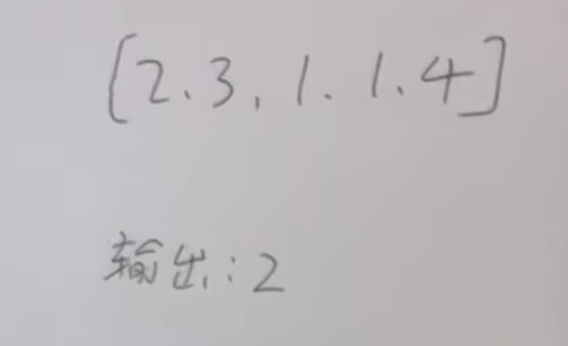 [2、3, 1. 1、4]
输出:2